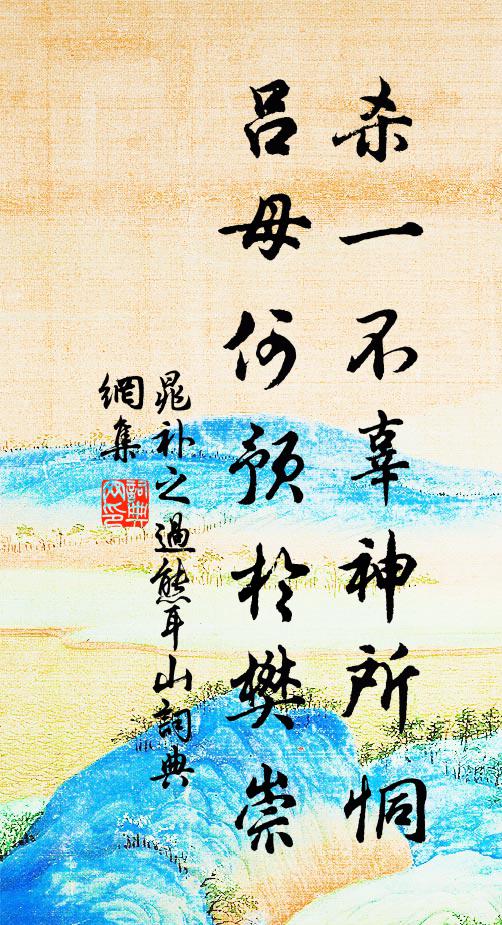 杀一不辜神所恫
吕母何预於樊崇
晁补之過熊耳山詞典
網集